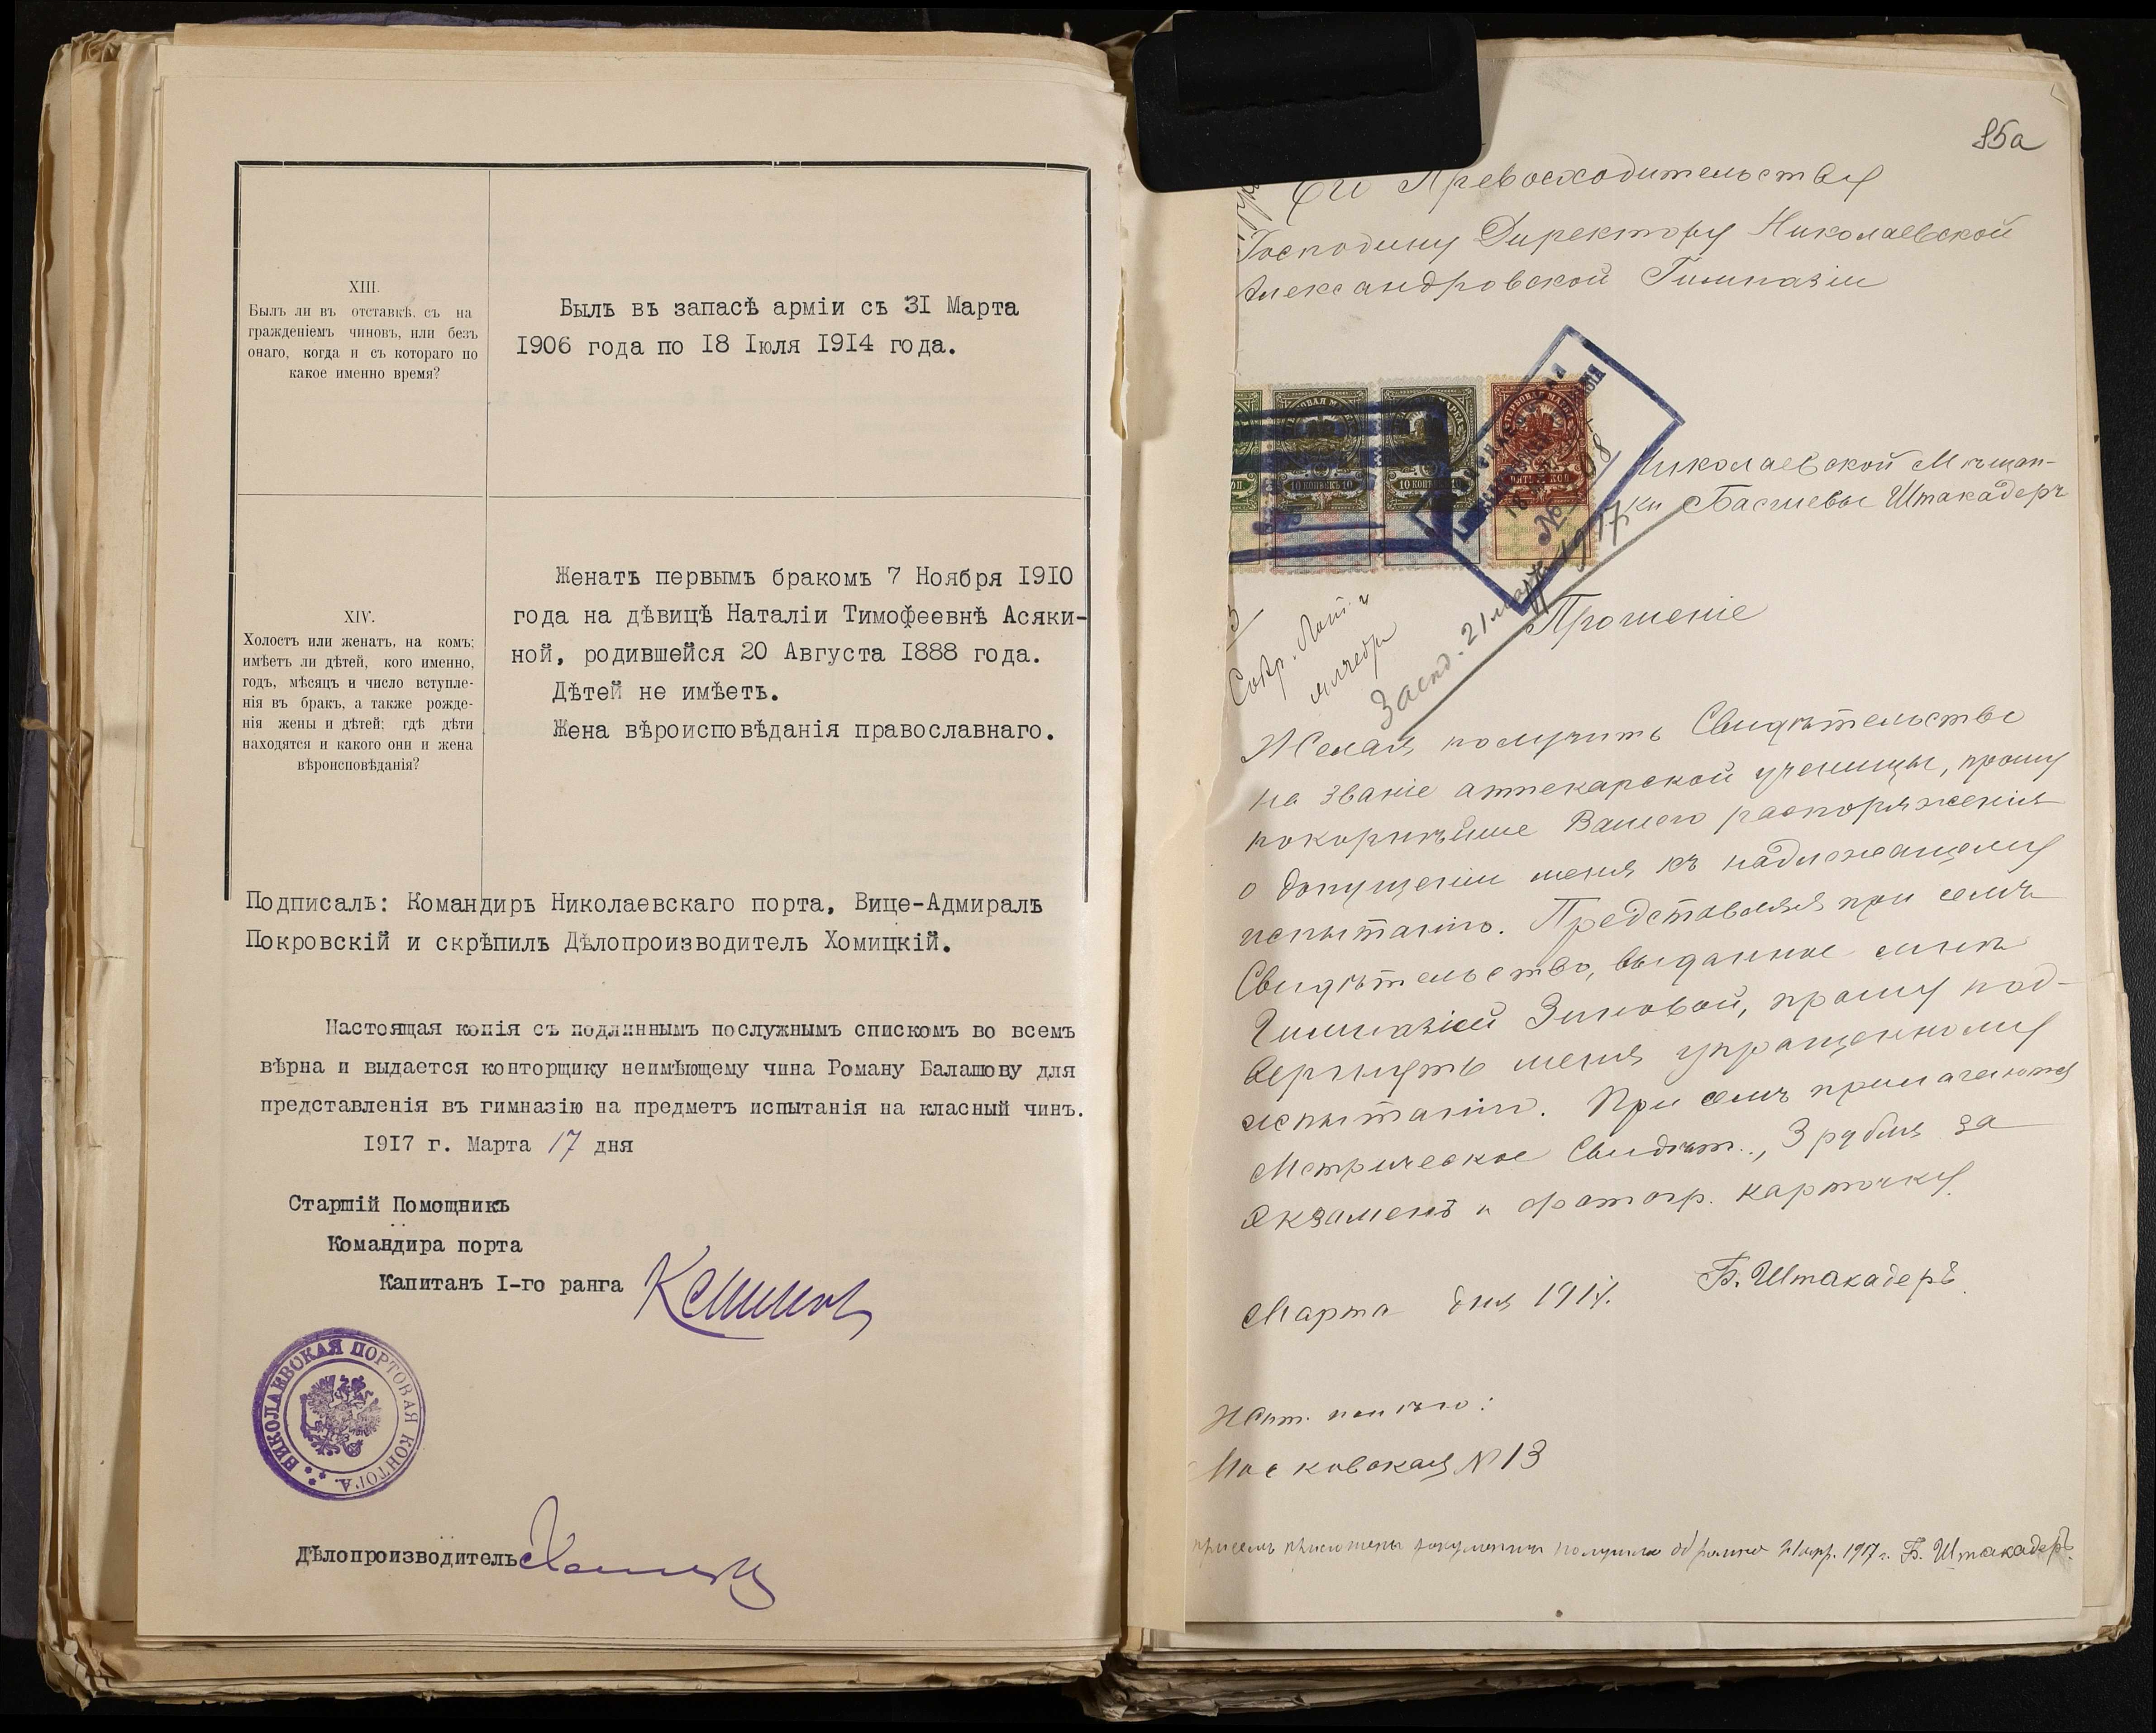 XIII.
Былъ ли въ отставкѣ, съ на
гражденіемъ чиновъ, или безъ
онаго, когда и съ котораго по
какое именно время?
Былъ въ запасѣ арміи съ 31 Марта
1906 года по 18 Іюля 1914 года.
XIV.
Холостъ или женатъ, на комъ;
имѣетъ ли дѣтей, кого именно,
годъ, мѣсяцъ и число вступле-
нія въ бракъ, а также рожде-
нія жены и дѣтей; гдѣ дѣти
находятся и какого они и жена
вѣроисповѣданія?
Женатъ первымъ бракомъ 7 Ноября 1910
года на дѣвицѣ Наталіи Тимофеевнѣ Асяки-
ной, родившейся 20 Августа 1888 года.
Дѣтей не имѣетъ.
Жена вѣроисповѣданія православнаго.
Подписалъ: Командиръ Николаевскаго порта, Вице-Адмиралъ
Покровскій и скрѣпилъ Дѣлопроизводитель Хомицкій.
Настоящая копія съ подлиннымъ послужнымъ спискомъ во всемъ
вѣрна и выдается конторщику неимѣющему чина Роману Балашову для
представленія въ гимназію на предметъ испытанія на класный чинъ.
1917 г. Марта 17 дня
Старшій Помощникъ
Командира порта
Капитанъ I-го ранга
НИКОЛАЕВСКАЯ ПОРТОВАЯ КОНТОРА
Дѣлопроизводитель
85а
Его Превосходительству
Господину Директору Николаевской
Александровской Гимназіи
10 КОПѢЕКЪ 10
10 КОПѢЕКЪ 10
Николаевской Мѣщан-
ки Басшевы Штакадеръ
21 март 1917
Прошеніе
Желая получить Свидѣтельство
на званіе аптекарской ученицы, прошу
покорнѣйше Вашего распоряженія
о допущеніи меня къ надлежащему
испытанію. Представляя при семъ
Свидѣтельство, выданное мнѣ
Гимназіей Зиновой, прошу под-
вергнуть меня упрощенному
испытанію. При семъ прилагаются
Метрическое Свидѣт., 3 рубля за
экзаменъ и фотогр. карточку.
Марта дня 1917.
Б. Штакадеръ.
Московская № 13
документы получила обратно 21 апр. 1917 г. Б. Штакадеръ.